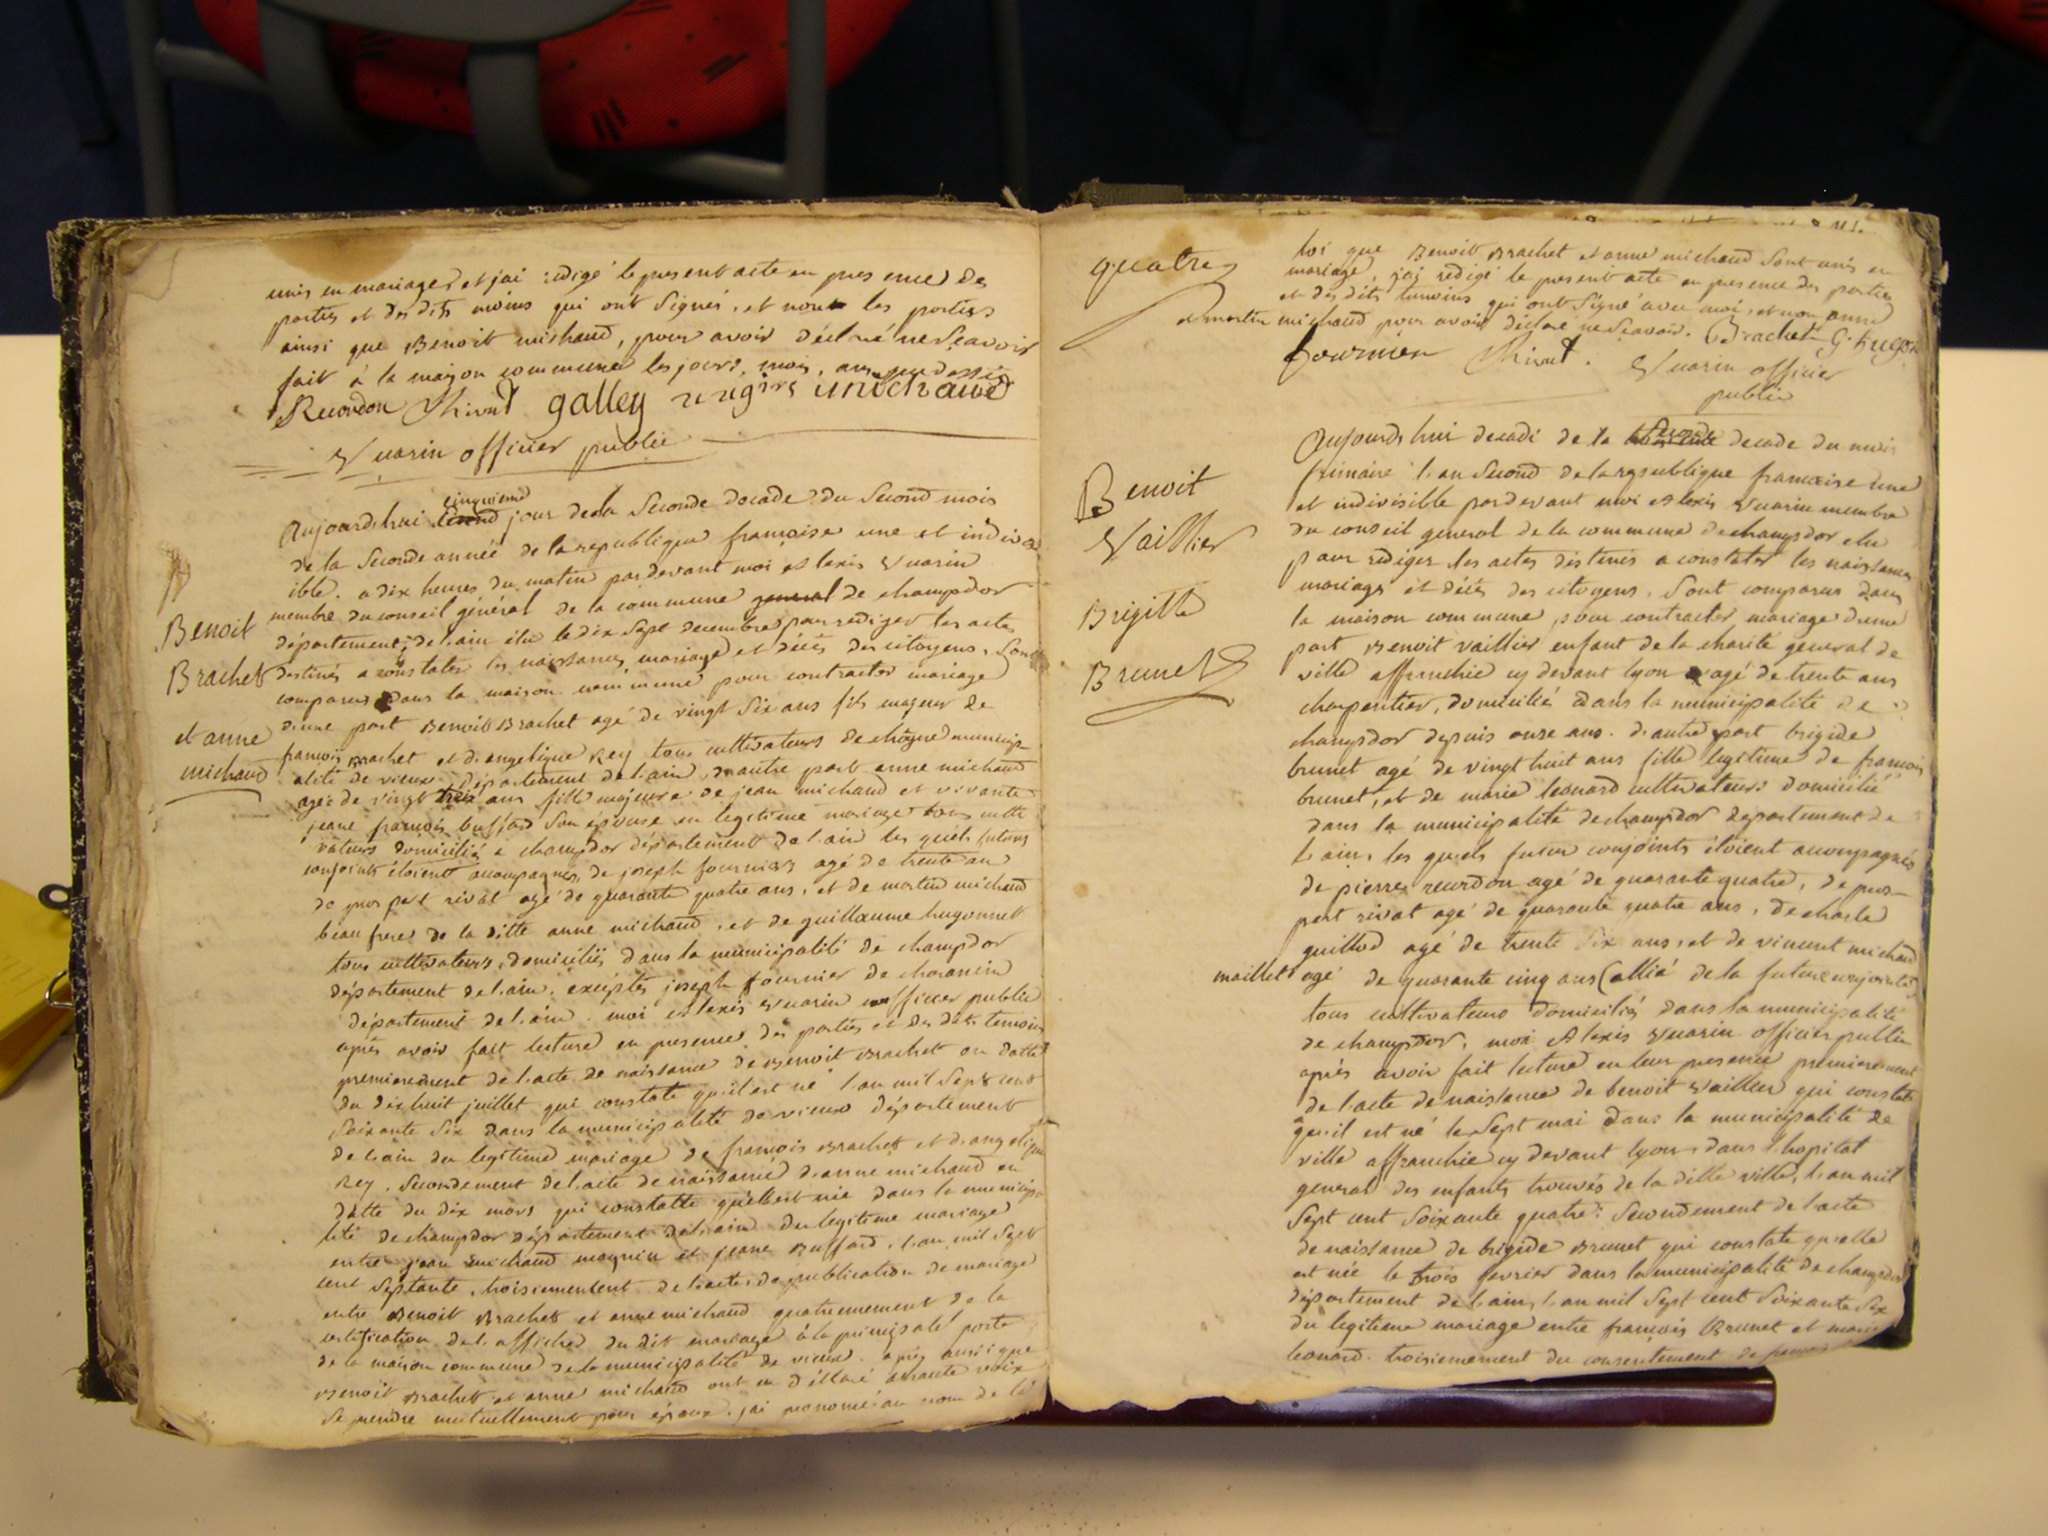 unis en mariage, et jai redigé le present acte en presence des
parties et des dits moins qui ont signés, et non les parties
ainsi que Benoit michaud, pour avoir déclaré ne sçavoir
fait à la maison commune les jours, mois, ans que dessus
Recordon Rivat galley michaud
Vuarin officier public
Aujourdhui second cinquieme jour de la seconde decade du second mois
de la seconde année de la republique françoise une et indivis
ible. a dix heures du matin pardevant moi Alexis Vuarin
membre du conseil général de la commune general de champdor
département de l'ain élu le dix sept decembre pour rediger les actes
destinés a constater les naissances, mariage et décès des citoyens. Sont
comparus dans la maison commune pour contracter mariage
dune part Benoit Brachet agé de vingt six ans fils majeur de
françois Brachet et d'angelique Rey tous cultivateurs de municip-
alité de vieux département de l'ain, d'autre part anne michaud
agée de vingt trois ans fille majeure de jean michaud et vivante
jeane françois buffard son épouse en legitime mariage tous culti
vateurs domiciliés à champdor département de l'ain les quels futurs
conjoints étoient accompagnés de joseph fournier agé de trente an
de prospert rivat agé de quarante quatre ans, et de martin michaud
beau frere de la ditte anne michaud, et de guillaume hugonnet
tous cultivateurs, domiciliés dans la municipalité de champdor
département de l'ain, exceptés joseph fournier de
département de l'ain. moi Alexis Vuarin officier public
après avoir fait lecture en presence des parties et des dits temoins
premierement de l'acte de naissance de Benoit Brachet en datte
du dix huit juillet qui constate qu'il est né l'an mil sept cent
soixante six dans la municipalité de vieux département
de l'ain du legitime mariage de françois Brachet et d'angelique
Rey. secondement de l'acte de naissance d'anne michaud en
datte du dix mars qui constatte qu'elle est née dans la municipa
lité de champdor département de l'ain du legitime mariage
entre jean michaud et jeane Buffard, l'an mil sept
cent septante, troisiemement de l'acte de publication de mariage
entre Benoit Brachet et anne michaud quatriemement de la
certification de l'affiche du dit mariage à la principale porte
de la maison commune de la municipalité de vieux. après aussi que
Benoit Brachet et anne michaud ont eu déclaré à haute voix
se prendre mutuellement pour époux. jai prononcé au nom de la
Benoit
Brachet
et anne
michaud
quatre
loi que Benoit Brachet et anne michaud sont unis en
mariage, jai redigé le present acte en presence des parties
et des dits temoins qui ont signé avec moi, et non anne
et martin michaud pour avoir déclaré ne sçavoir. Brachet G. hugon
fournier Rivat. Vuarin officier
public
Benoit
Vaillier
Brigitte
Brunet
Aujourdhui decadi de la seconde decade du mois
frimaire l'an second de la republique françoise une
et indivisible pardevant moi Alexis Vuarin membre
du conseil general de la commune de champdor elu
pour rediger les actes destinés a constater les naissances
mariages et décès des citoyens. Sont comparus dans
la maison commune pour contracter mariage dune
part Benoit Vaillier enfant de la charité general de
ville affranchie cy devant lyon agé de trente ans
charpentier, domicilié dans la municipalité de
champdor depuis onze ans. d'autre part brigide
brunet agé de vingt huit ans fille legitime de françois
brunet, et de marie leonard cultivateurs domicilié
dans la municipalité de champdor département de
l'ain, les quels futur conjoints étoient accompagnés
de pierre recordon agé de quarante quatre, de pros-
pert rivat agé de quarante quatre ans, de charle
guillod agé de trente six ans, et de vincent michaud
maillet agé de quarante cinq ans (allié de la future conjointe)
tous cultivateurs domiciliés dans la municipalité
de champdor, moi Alexis Vuarin officier public
après avoir fait lecture en leur presence premierement
de l'acte de naissance de benoit Vaillier qui constate
qu'il est né le sept mai dans la municipalité de
ville affranchie cy devant lyon, dans l'hopital
general des enfants trouvés de la ditte ville, l'an mil
sept cent soixante quatre: secondement de l'acte
de naissance de brigide Brunet qui constate qu'elle
est née le trois fevrier dans la municipalité de champdor
département de l'ain, l'an mil sept cent soixante six
du legitime mariage entre françois Brunet et marie
leonard. troisiemement du consentement de